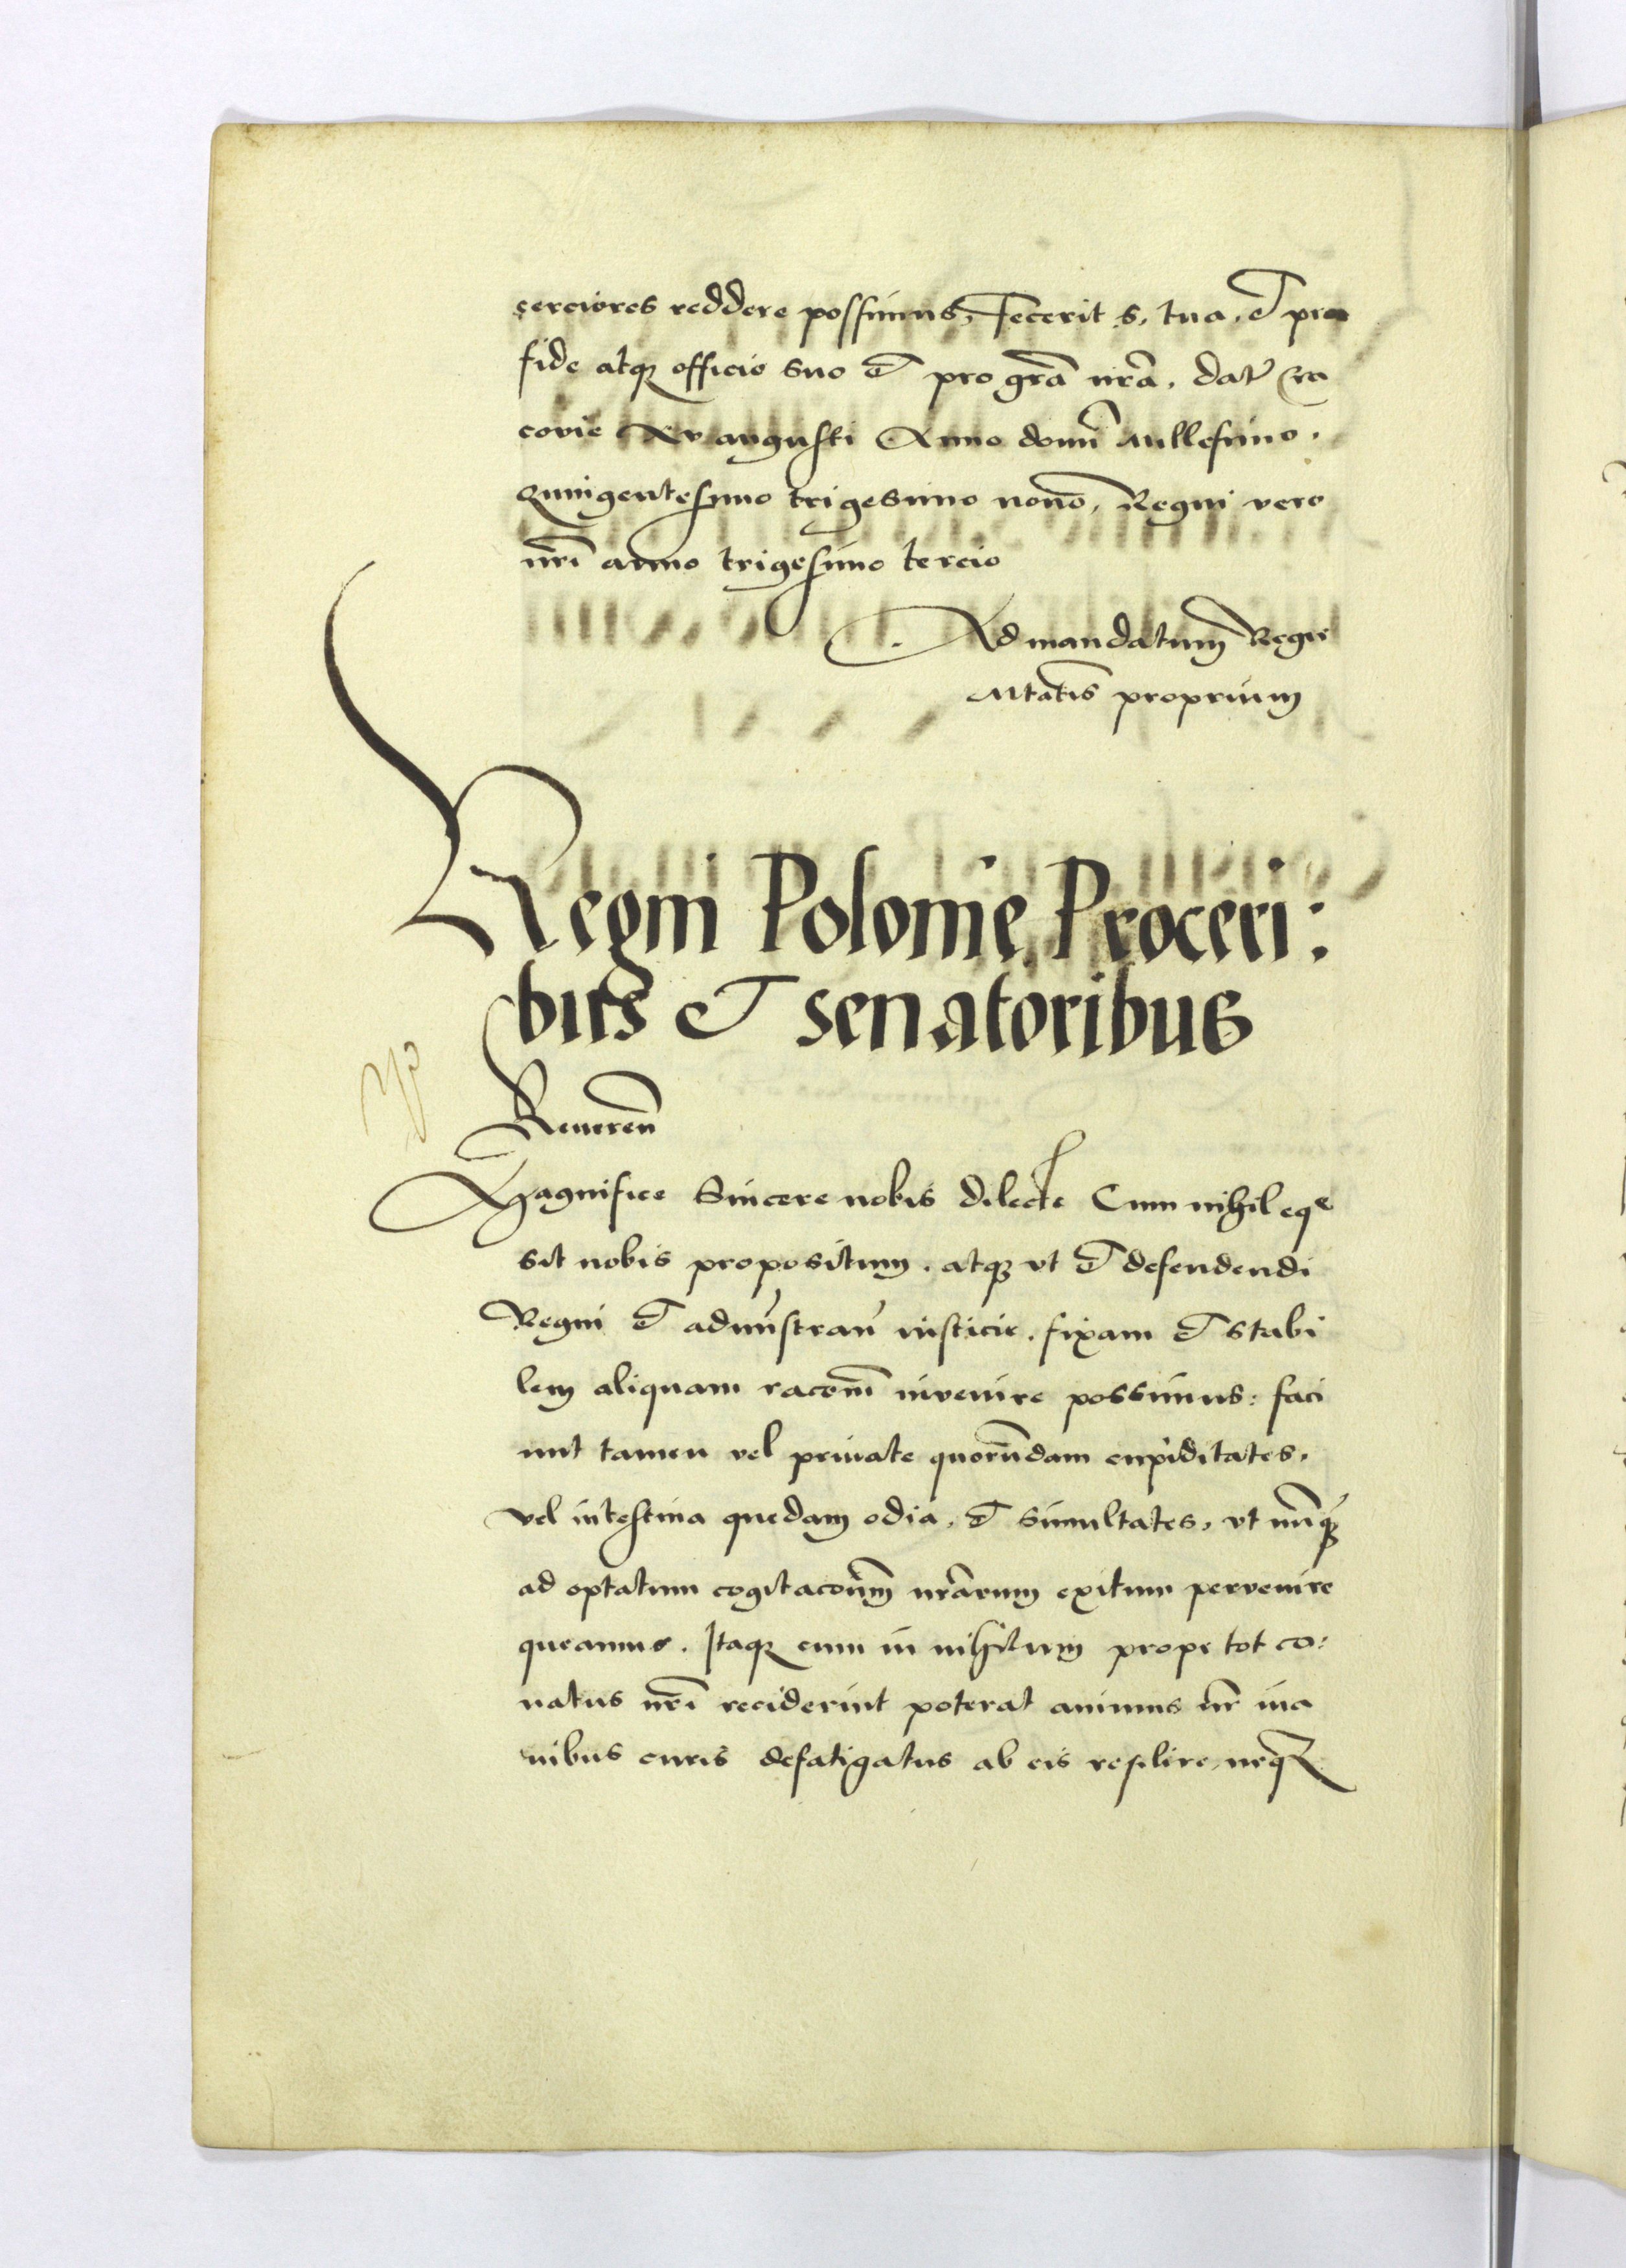 cerciores reddere possimus, Fecerit s. tua. et pro
fide atq officio suo et pro gra͞ nra͞. dat Cra
covie xv augusti Anno domi͞ Millesimo.
Quingentesimo trigesimo nono. Regni vero
nri͞ anno trigesimo tercio
Ad mandatum Regie
Mtatis proprium
Regni Polonie Proceri:
bus et senatoribus
Reueren͞
Magnifice Sincere nobis dilecte Cum nihil eqe
sit nobis propositum. atq vt et defendendi
Regni et admi͞stran͞ iusticie. fixam et stabi
lem aliquam raco͞m invenire possimus: faci
unt tamen vel private quoru͞dam cupiditates.
vel intestina quedam odia. et simultates, vt nu͞q
ad optatum cogitaco͞nm nra͞rum exitum pervenire
queamus. Itaq cum in nihilum prope tot co:
natus nri͞ reciderint poterat animus nr͞ ina
nibus curis defatigatus ab eis resilire, neq